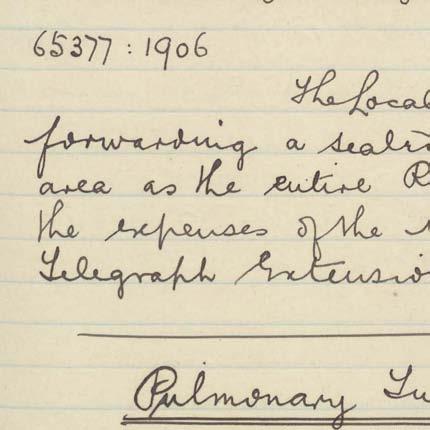 65377 : 1906
The Local
forwarding a seale
area as the entire R
the expenses of the
Telegraph Extensio
Pulmonary Tu